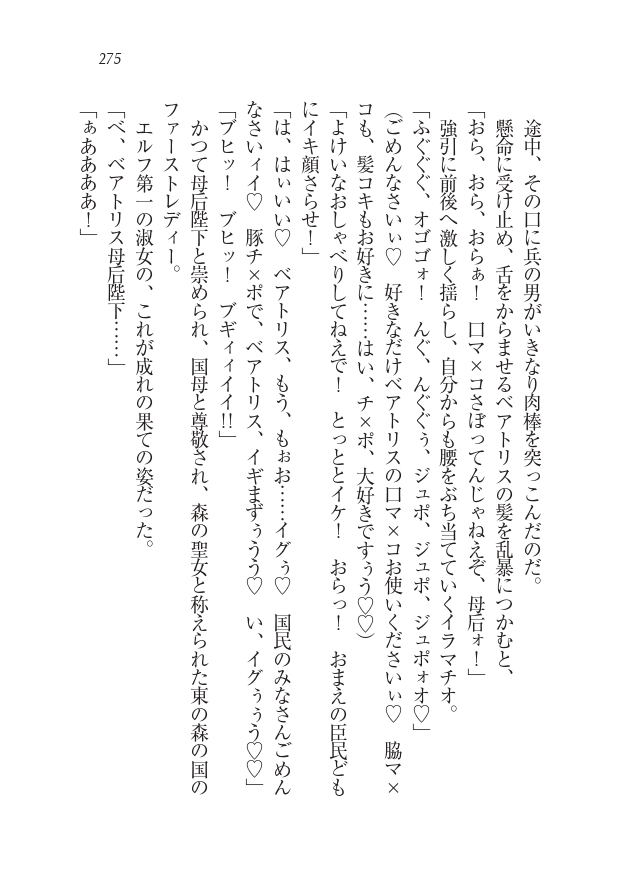 275
途中、その口に兵の男がいきなり肉棒を突っこんだのだ。
懸命に受け止め、舌をからませるベアトリスの髪を乱暴につかむと、
「おら、おら、おらぁ！　口マ×コさぼってんじゃねえぞ、母后ォ！」
強引に前後へ激しく揺らし、自分からも腰をぶち当てていくイラマチオ。
「ふぐぐぐ、オゴゴォ！　んぐ、んぐぐぅ、ジュポ、ジュポ、ジュポォオ♡」
(ごめんなさいぃ♡　好きなだけベアトリスの口マ×コお使いくださいぃ♡　脇マ×
コも、髪コキもお好きに……はい、チ×ポ、大好きですぅう♡♡)
「よけいなおしゃべりしてねえで！　とっととイケ！　おらっ！　おまえの臣民ども
にイキ顔さらせ！」
「は、はぃいい♡　ベアトリス、もう、もぉお……イグぅ♡　国民のみなさんごめん
なさいィイ♡　豚チ×ポで、ベアトリス、イギまずぅうう♡　い、イグぅぅう♡♡」
「ブヒッ！　ブヒッ！　ブギィィイイ!!」
かつて母后陛下と崇められ、国母と尊敬され、森の聖女と称えられた東の森の国の
ファーストレディー。
エルフ第一の淑女の、これが成れの果ての姿だった。
「べ、ベアトリス母后陛下……」
「ぁああああ！」